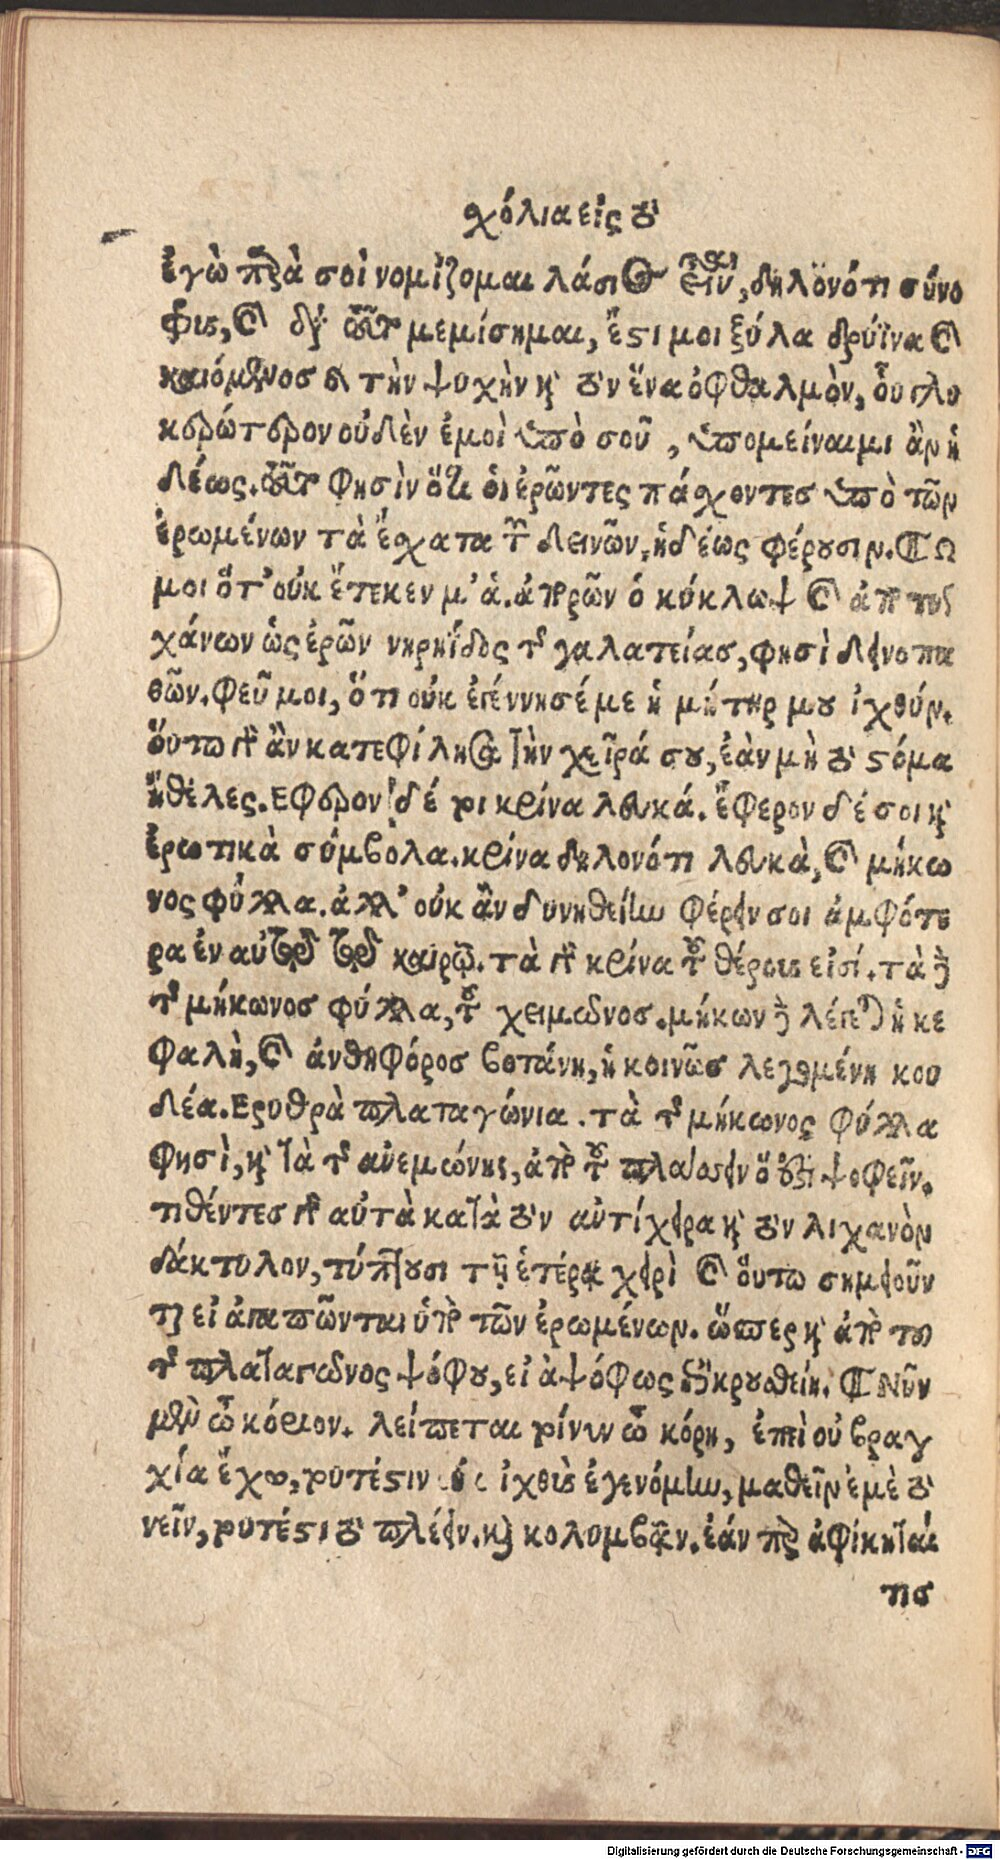 χόλια εἰς τὸ
ἐγὼ παρὰ σοὶ νομίζομαι λάσιος εἶναι, δηλονότι σύνο
φρυς, καὶ διὰ τοῦτο μεμίσημαι, ἔστι μοι ξύλα δρύϊνα καὶ
καιόμενος καὶ τὴν ψυχὴν καὶ τὸν ἕνα ὀφθαλμὸν, οὗ γλυ
κερώτερον οὐδὲν ἐμοὶ ὑπὸ σοῦ, ὑπομείναιμι ἂν ἡ
δέως. τοῦτο φησὶν ὅτι οἱ ἐρῶντες πάσχοντες ὑπὸ τῶν
ἐρωμένων τὰ ἔσχατα τῶν δεινῶν, ἡδέως φέρουσιν. Ω
μοι ὅτ' οὐκ ἔτεκεν μ' ἁ. ἀπορῶν ὁ κύκλωψ καὶ ἀπο τυγ
χάνων ὡς ἐρῶν νηρηΐδος τῆς γαλατείας, φησὶ δεινοπα
θῶν. φεῦ μοι, ὅτι οὐκ ἐγέννησέ με ἡ μήτηρ μου ἰχθύν.
οὕτω γὰρ ἂν κατεφίλησα τὴν χεῖρά σου, ἐὰν μὴ τὸ στόμα
ἤθελες. Εφερον δέ τοι κρίνα λευκά. ἔφερον δέ σοι καὶ
ἐρωτικὰ σύμβολα. κρίνα δηλονότι λευκὰ, καὶ μήκω
νος φύλλα. ἀλλ' οὐκ ἂν δυνηθείην φέρειν σοι ἀμφότε
ρα ἐν αὐτῷ τῷ καιρῷ. τὰ γὰρ κρίνα τοῦ θέρους εἰσί. τὰ δὲ
τῆς μήκωνος φύλλα, τοῦ χειμῶνος. μήκων δὲ λέγεται ἡ κε
φαλὴ, καὶ ἀνθηφόρος βοτάνη, ἡ κοινῶς λεγομένη κου
δέα. Ερυθρὰ πλαταγώνια. τὰ τῆς μήκωνος φύλλα
φησὶ, καὶ τὰ τῆς ἀνεμώνης, ἀπὸ τοῦ πλατάσσειν ὅ ἐστι ψοφεῖν.
τιθέντες γὰρ αὐτὰ κατὰ τὸν ἀντίχειρα καὶ τὸν λιχανὸν
δάκτυλον, τύπτουσι τῇ ἑτέρᾳ χειρὶ καὶ οὕτω σημειοῦν
ται εἰ ἀγαπῶνται ὑπὸ τῶν ἐρωμένων. ὥσπερ καὶ ἀπὸ του
τῆς πλαταγῶνος ψόφου, εἰ ἀψόφως διακρουσθείη. Νῦν
μὲν ὦ κόριον. λείπεται γίνου ὦ κόρη, ἐπεὶ οὐ βραγ
χία ἔχω, τουτέστιν ὡς ἰχθὺς ἐγενόμην, μαθεῖν ἐμὲ τὸ
νεῖν, τουτέστι τὸ πλέειν. καὶ κολυμβᾶν. ἐάν περ ἀφίκηται
τις
Digitalisierung gefördert durch die Deutsche Forschungsgemeinschaft - DFG